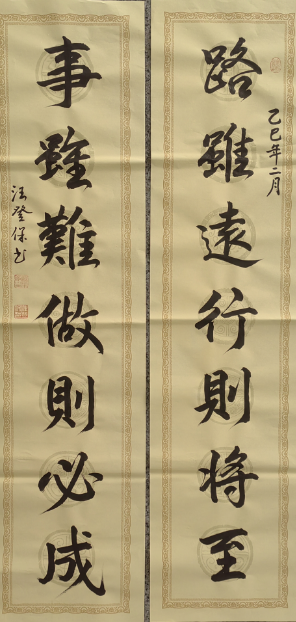 路雖遠行則將至
乙巳年二月
事雖難做則必成
汪登保書